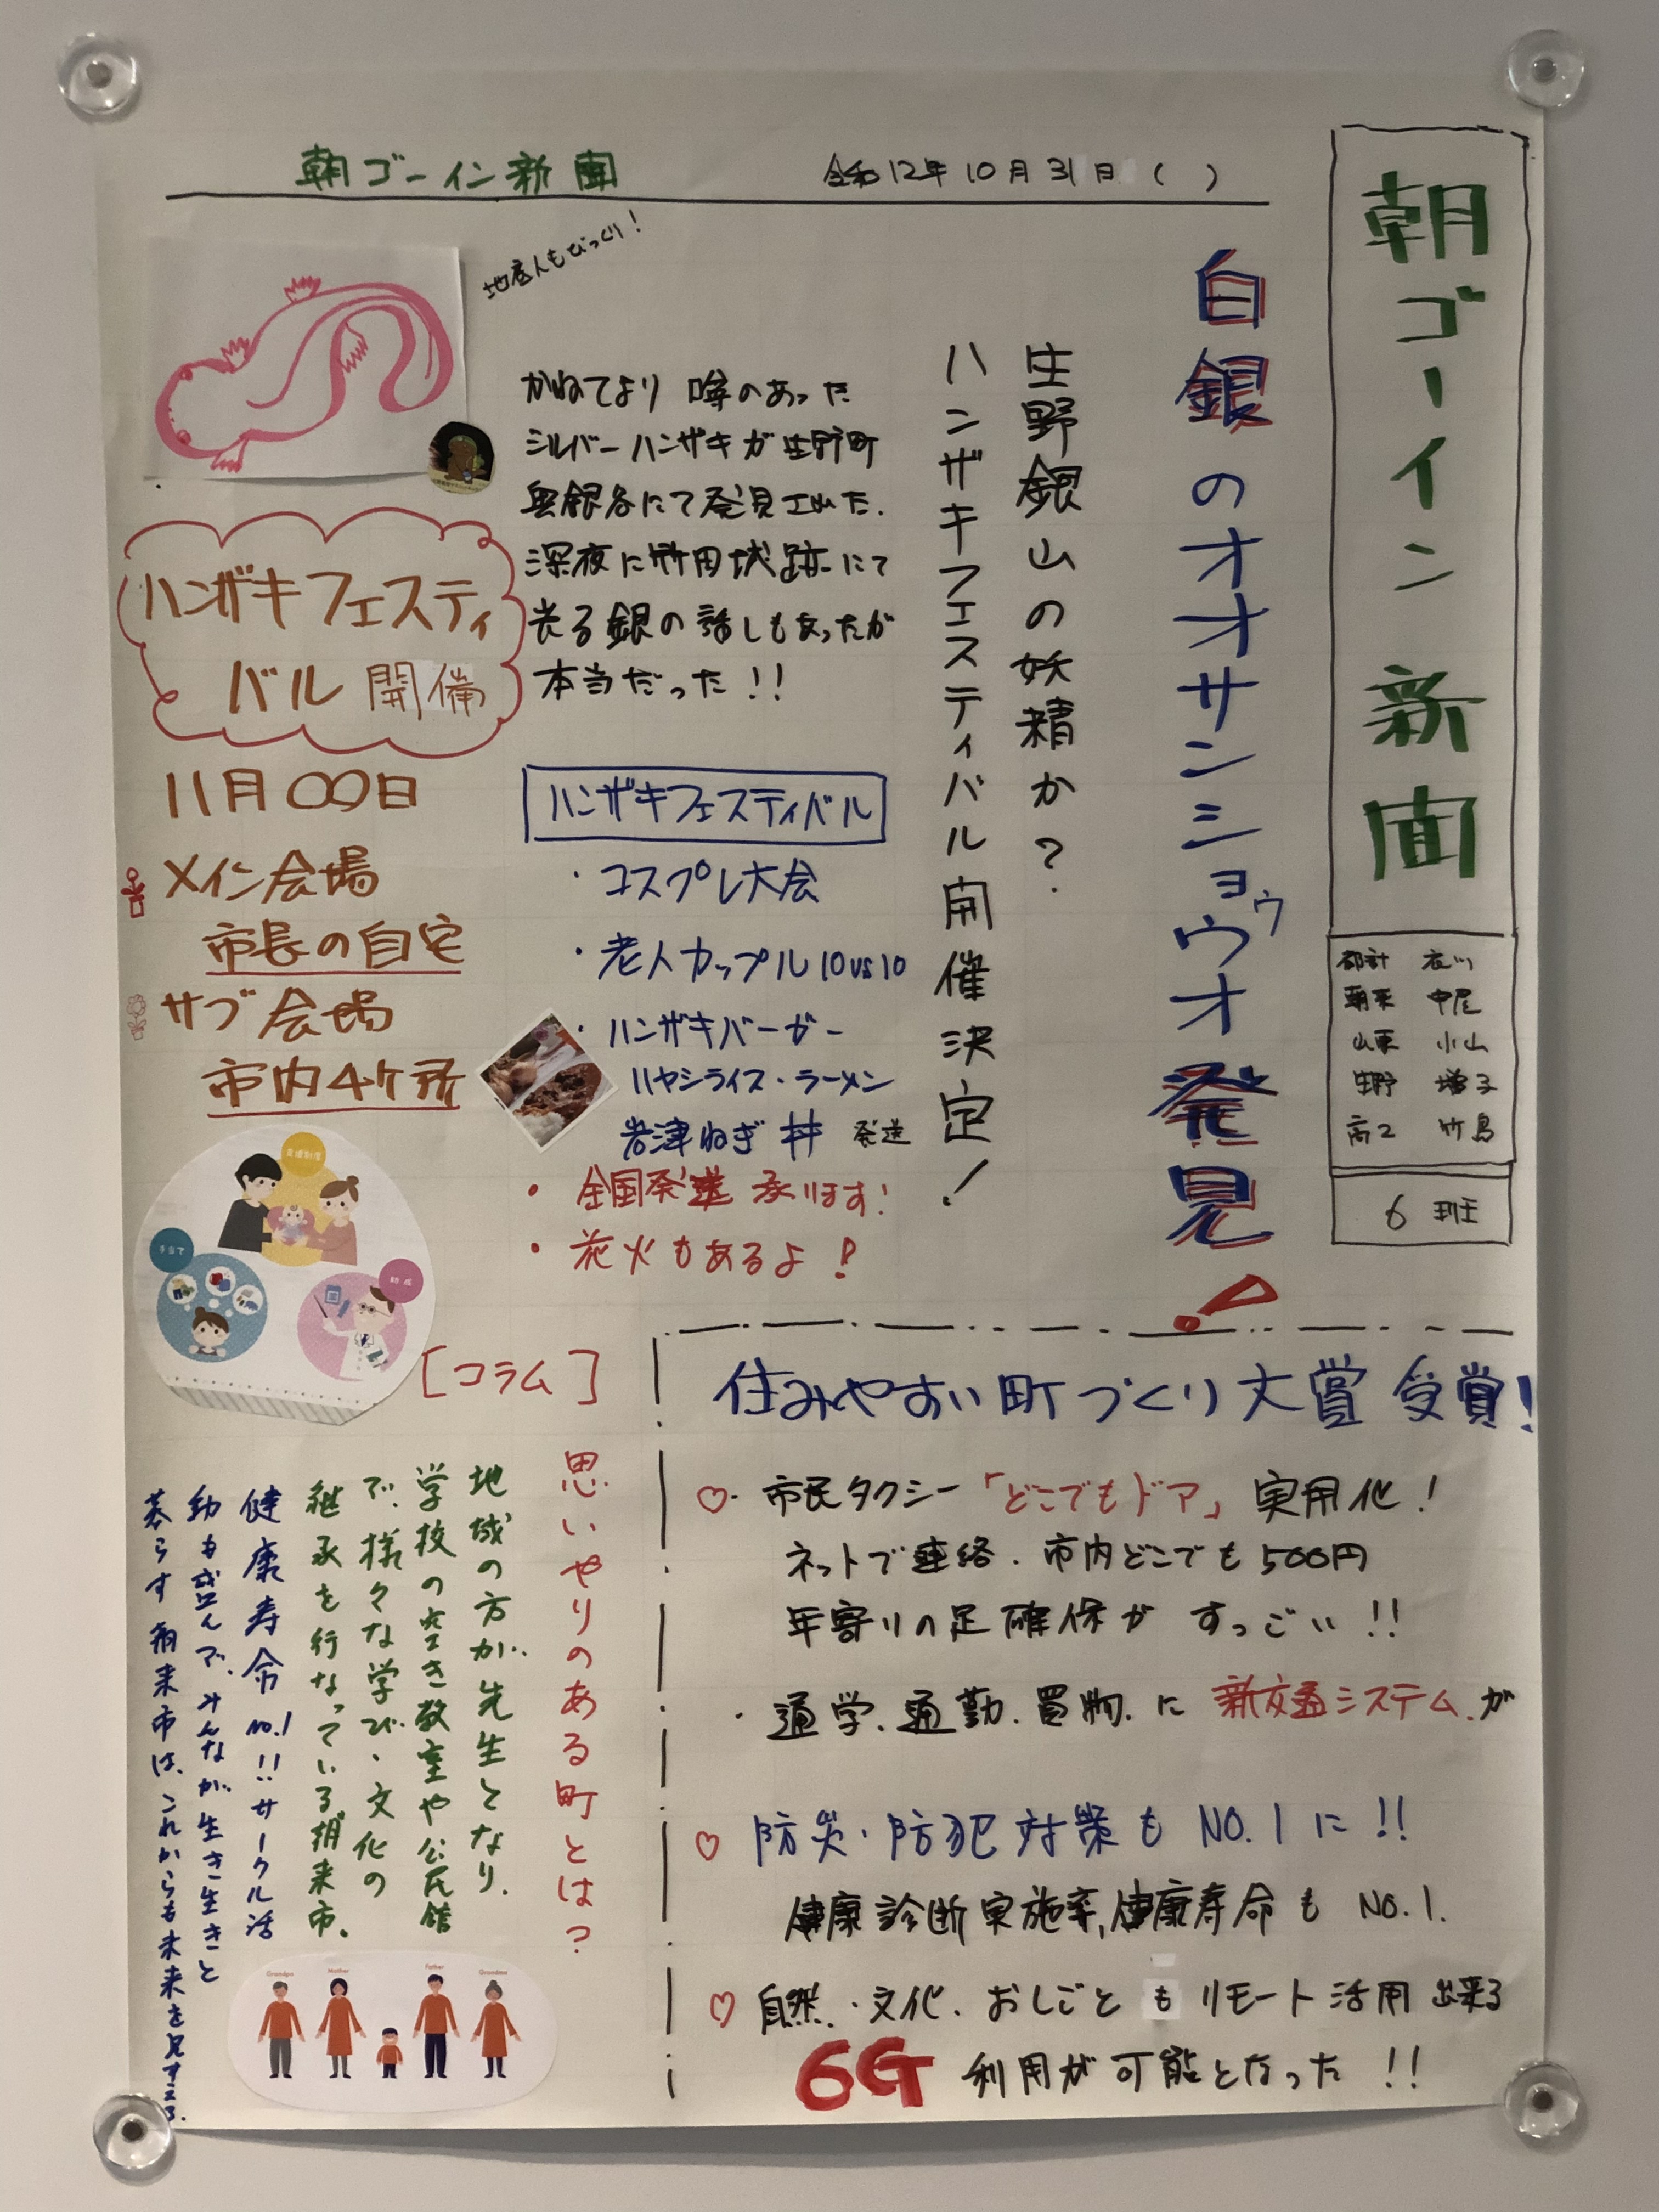 朝ゴーイン新聞
令和12年10月31日（ ）
朝ゴーイン新聞
都計 衣川
朝来 中尾
山東 小山
生野 増子
高2 竹島
6班
白銀のオオサンショウウオ発見!
生野銀山の妖精か？
ハンザキフェスティバル開催決定!
地底人もびっくり!
かねてより噂のあった
シルバーハンザキが生野町
奥銀谷にて発見された.
深夜に竹田城跡にて
光る銀の話しもあったが
本当だった!!
ハンザキフェスティバル
・コスプレ大会
・老人カップル10vs10
・ハンザキバーガー
ハヤシライス・ラーメン
岩津ねぎ丼 発送
・全国発送承ります!
・花火もあるよ!
ハンザキフェスティ
バル開催
11月〇〇日
メイン会場
市長の自宅
サブ会場
市内4ヶ所
支援制度
手当て
助成
[コラム]
思いやりのある町とは？
地域の方が先生となり、
学校の空き教室や公民館
で、様々な学び、文化の
継承を行なっている朝来市。
健康寿命No.1!!サークル活
動も盛んで、みんなが生き生きと
暮らす朝来市は、これからも未来を見すえる.
Grandpa
Mother
Father
Grandma
住みやすい町づくり大賞受賞!
♡・市民タクシー「どこでもドア」実用化!
ネットで連絡.市内どこでも500円
年寄りの足確保がすっごい!!
・通学、通勤、買物、に新交通システム.が
♡防災・防犯対策もNO.1に!!
健康診断実施率,健康寿命もNO.1.
♡自然.・文化.おしごともリモート活用出来る
6G利用が可能となった!!